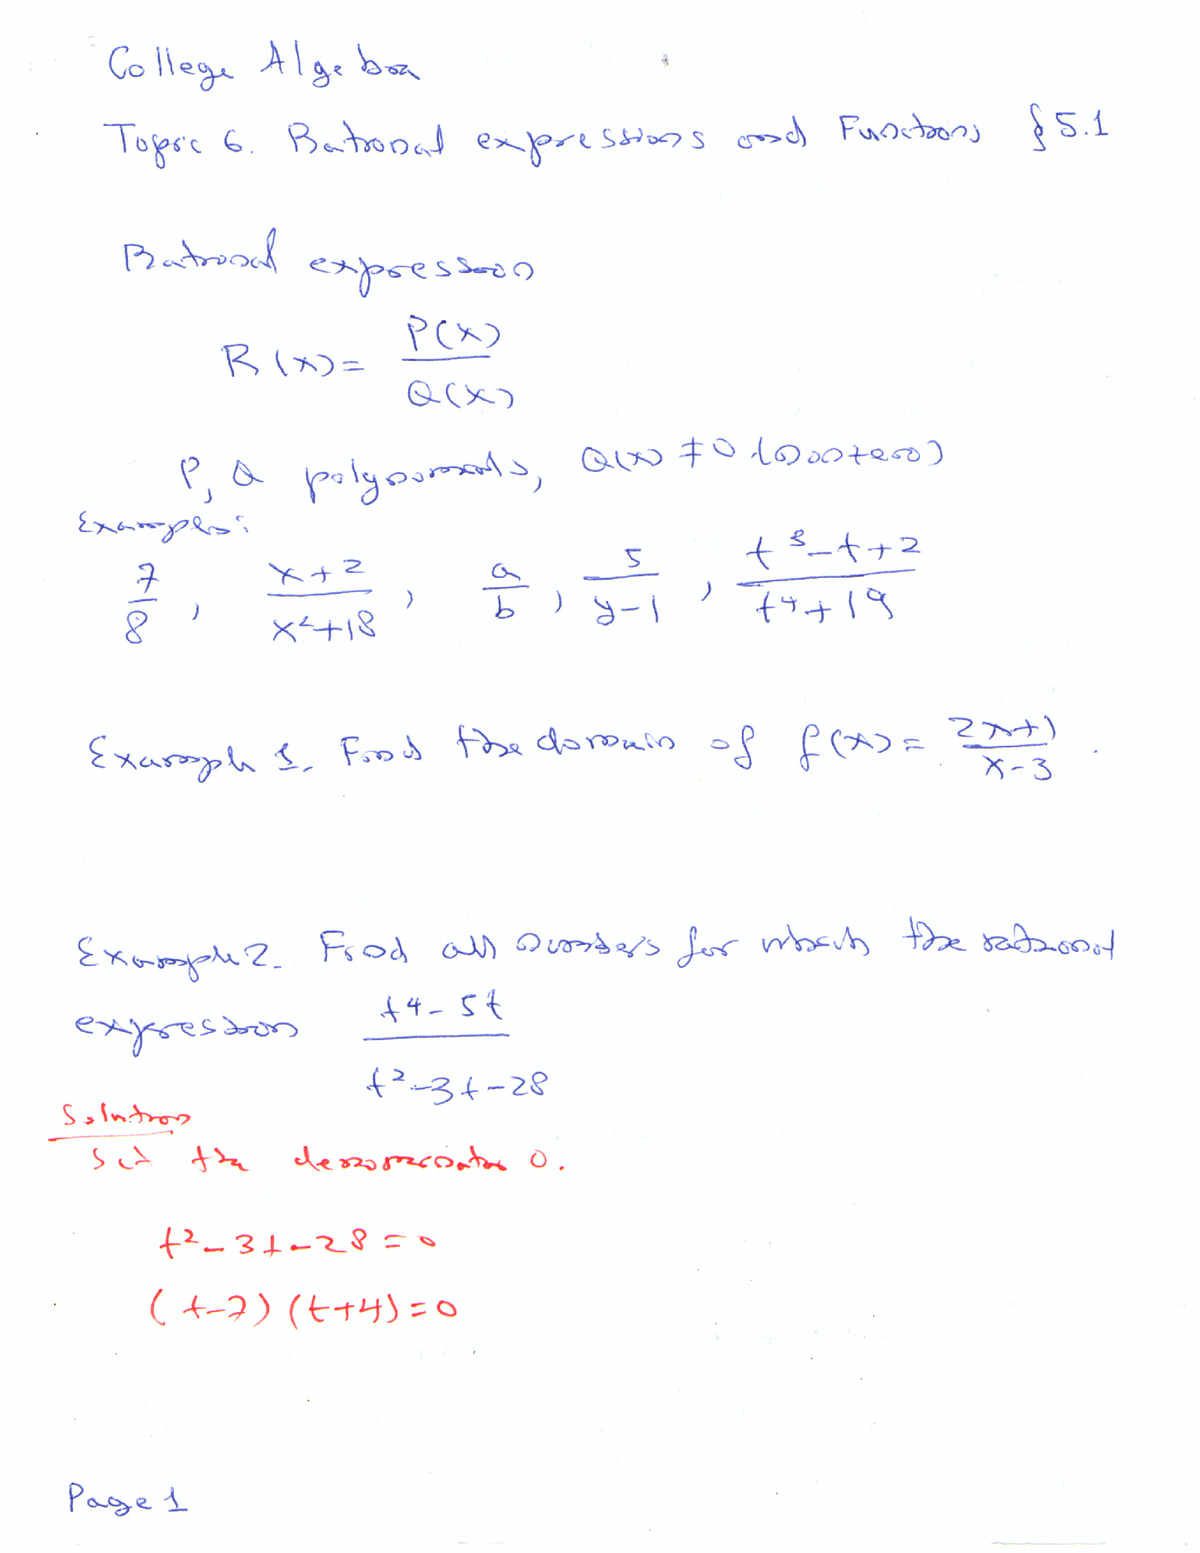 College Algebra
Topic 6. Rational expressions and Functions § 5.1
Rational expression
R(x) = P(x) / Q(x)
P, Q polynomials, Q(x) ≠ 0 (nonzero)
Examples:
7/8, (x+2)/(x²+18), a/b, 5/(y-1), (t³-t+2)/(t⁴+19)
Example 1. Find the domain of f(x) = (2x+1)/(x-3).
Example 2. Find all numbers for which the rational
expression (t⁴-5t)/(t²-3t-28)
Solution
Set the denominator 0.
t²-3t-28=0
(t-7)(t+4)=0
Page 1